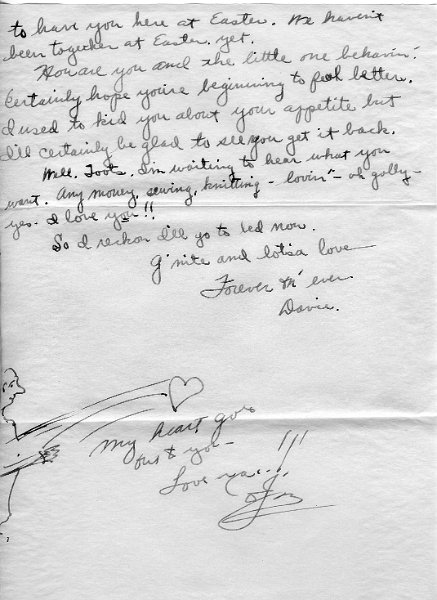 to have you here at Easter. We haven't
been together at Easter, yet.
How are you and the little one behavin'.
Certainly hope you're beginning to feel better.
I used to kid you about your appetite but
I'll certainly be glad to see you get it back.
Well, Toots, I'm waiting to hear what you
want. Any money, sewing, knitting - lovin' - oh golly -
yes. I love you!!
So I reckon I'll go to bed now.
G'nite and lotsa love
Forever 'n' ever
Davie.
My heart goes
out to you -
Love ya...!!!